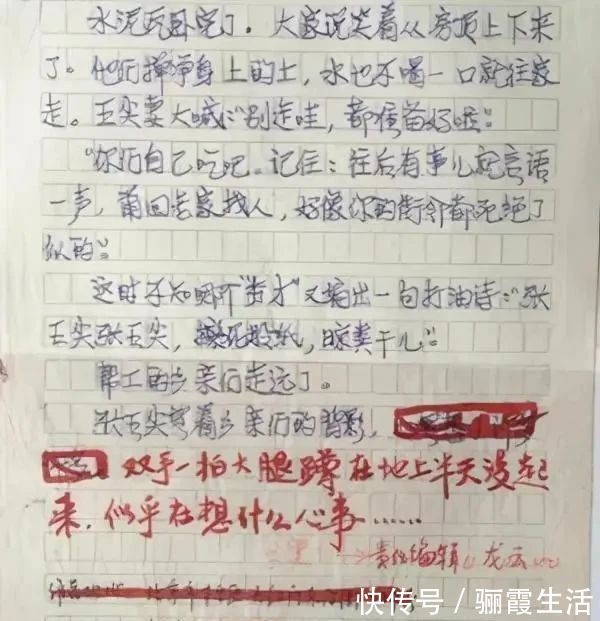 水泥瓦卧完了。大家说笑着从房顶上下来
了。他们掸净身上的土，水也不喝一口就往家
走。王尖妻大喊：“别走哇，都预备好啦：
“你们自己吃吧。记住：往后有事儿就言语
一声，甭回老家找人，好像你的街邻都死绝了
似的：
这时不知哪个“秀才”又编出一句打油诗：“张
王尖张王尖，，晾粪干儿”
帮工的乡亲们走远了。
张王尖望着乡亲们的背影，
双手一拍大腿蹲在地上半天没起
来，似乎在想什么心事……
责任编辑：龙云
快传号 / 骊霞生活